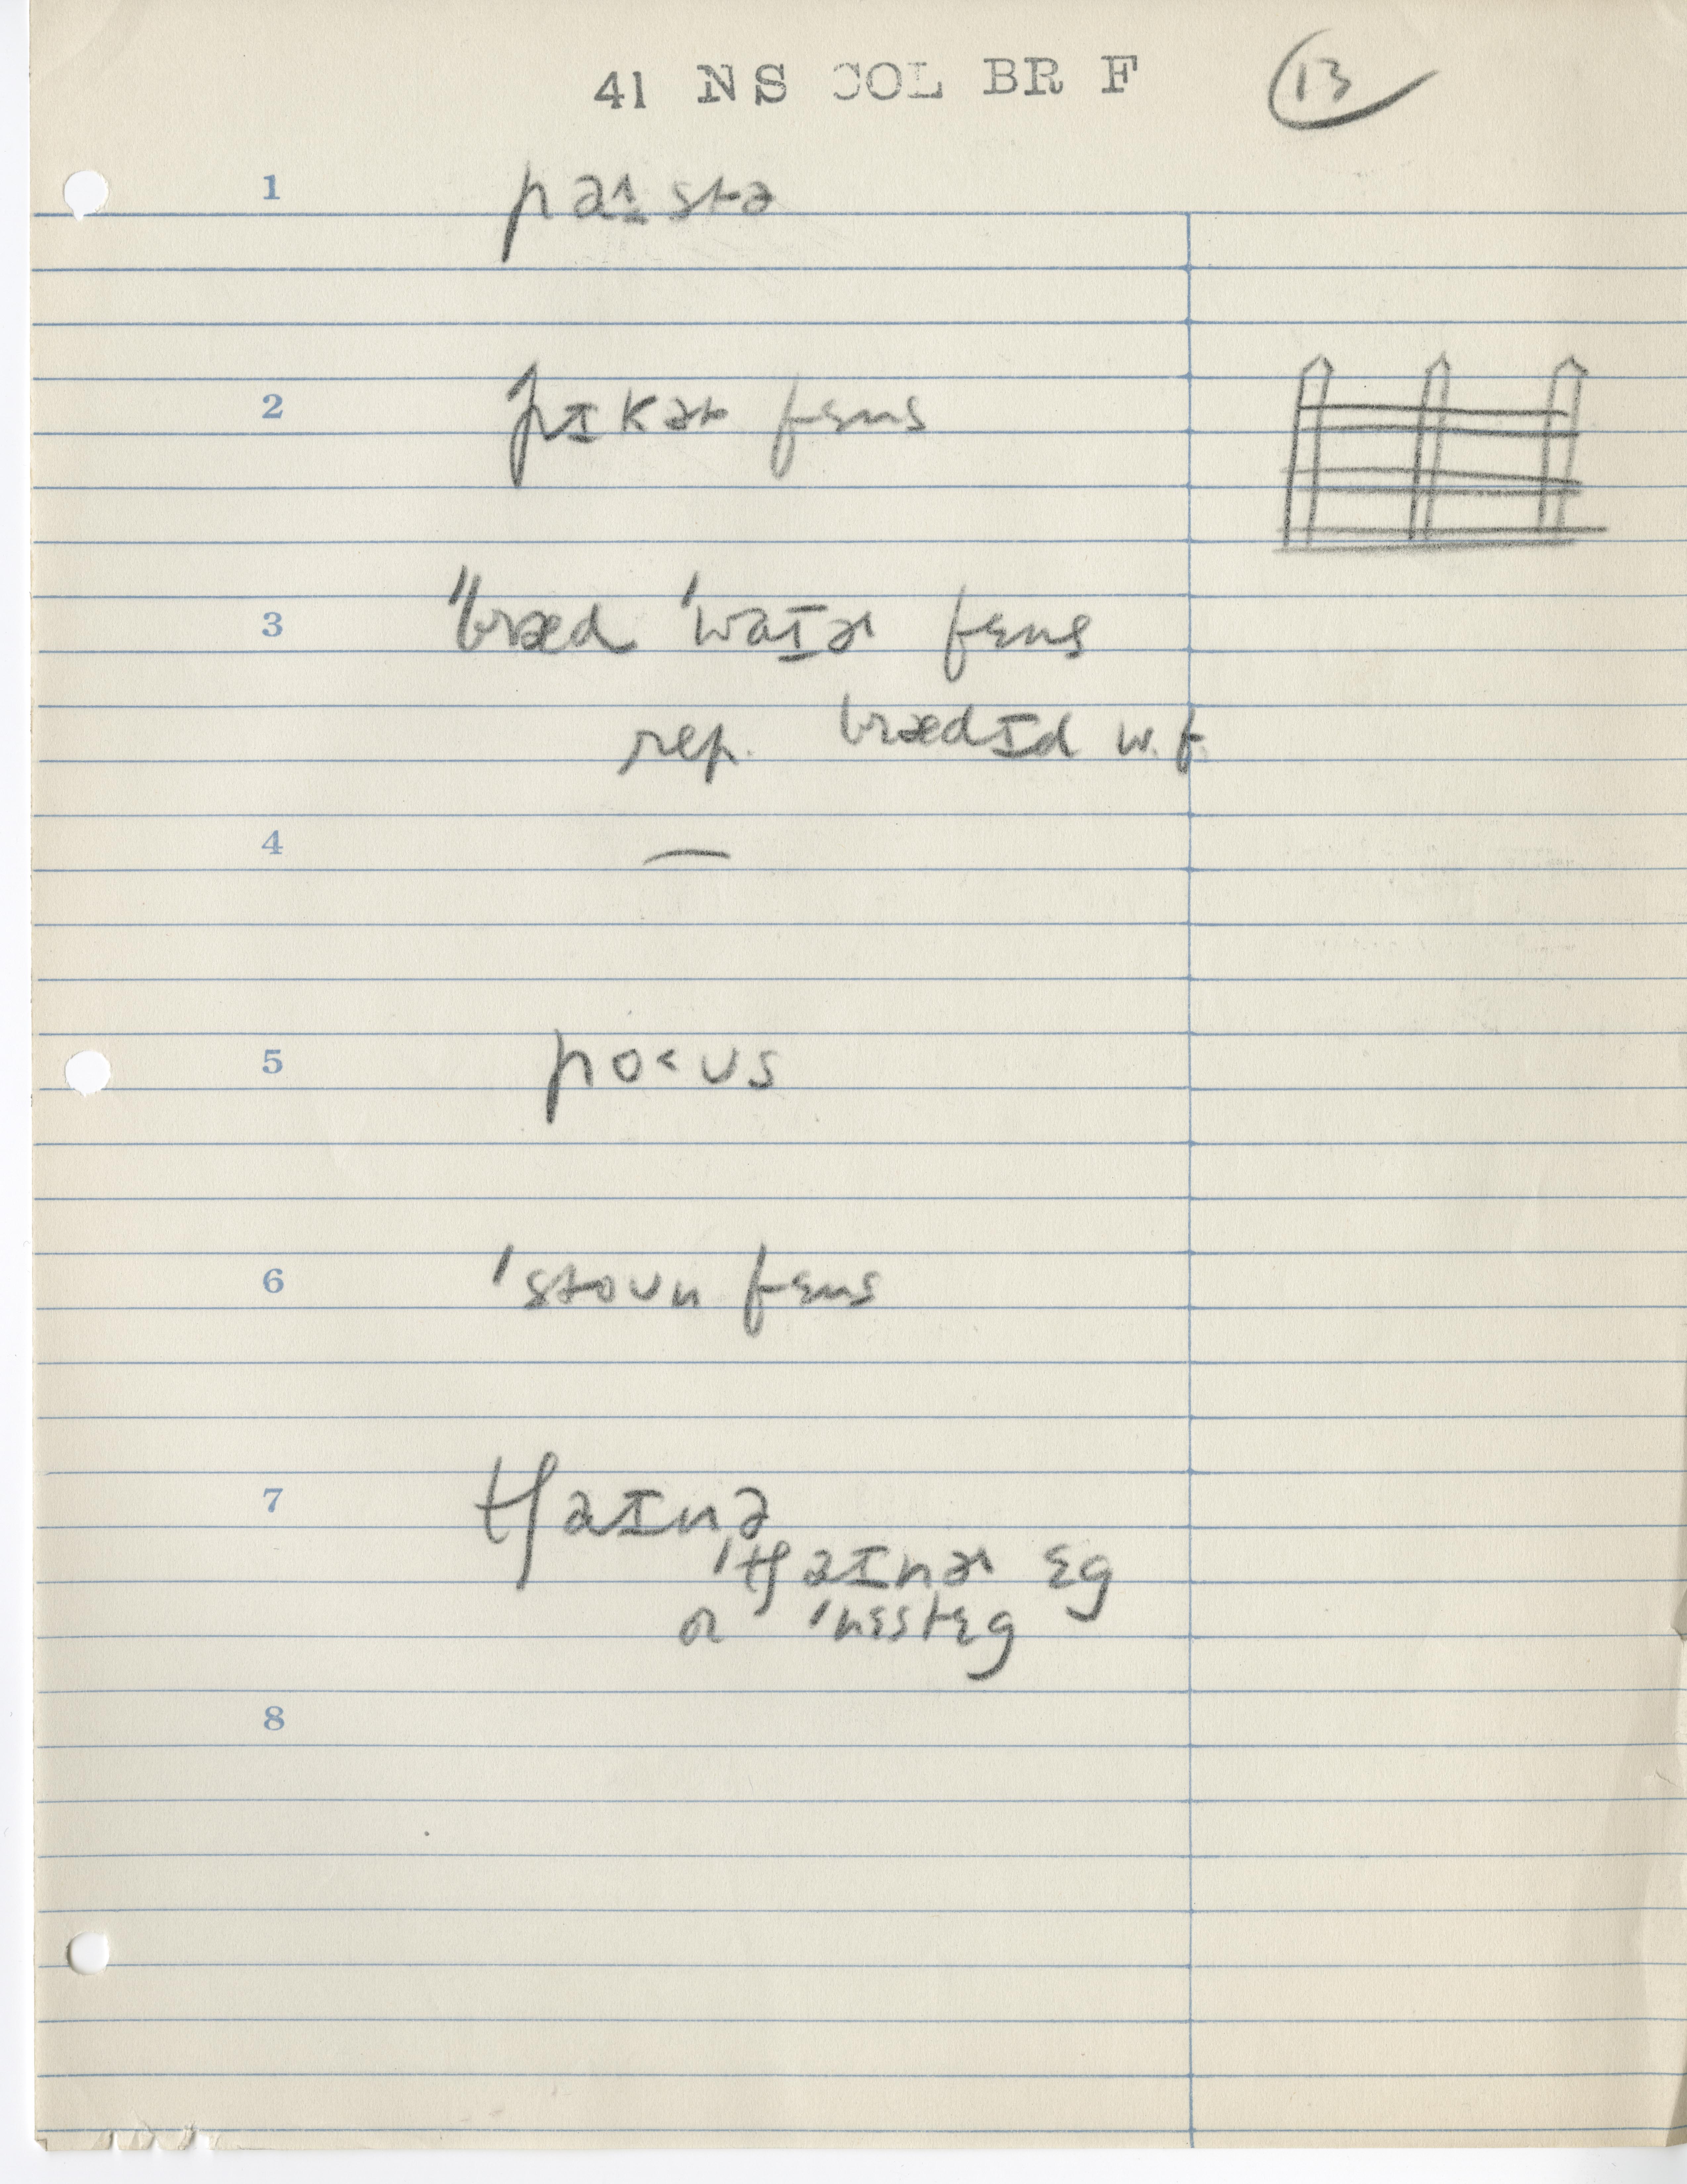 41 NS COL BR F
13
1 paɪstə
2 pɪkət fɛns
3 "bræd 'waɪɚ fɛns
rep. brædɪd w.f.
4 —
5 po˂ʊs
6 'stoʊn fɛns
7 tʃaɪnə
'tʃaɪnɚ ɛg
or 'nɛstɛg
8